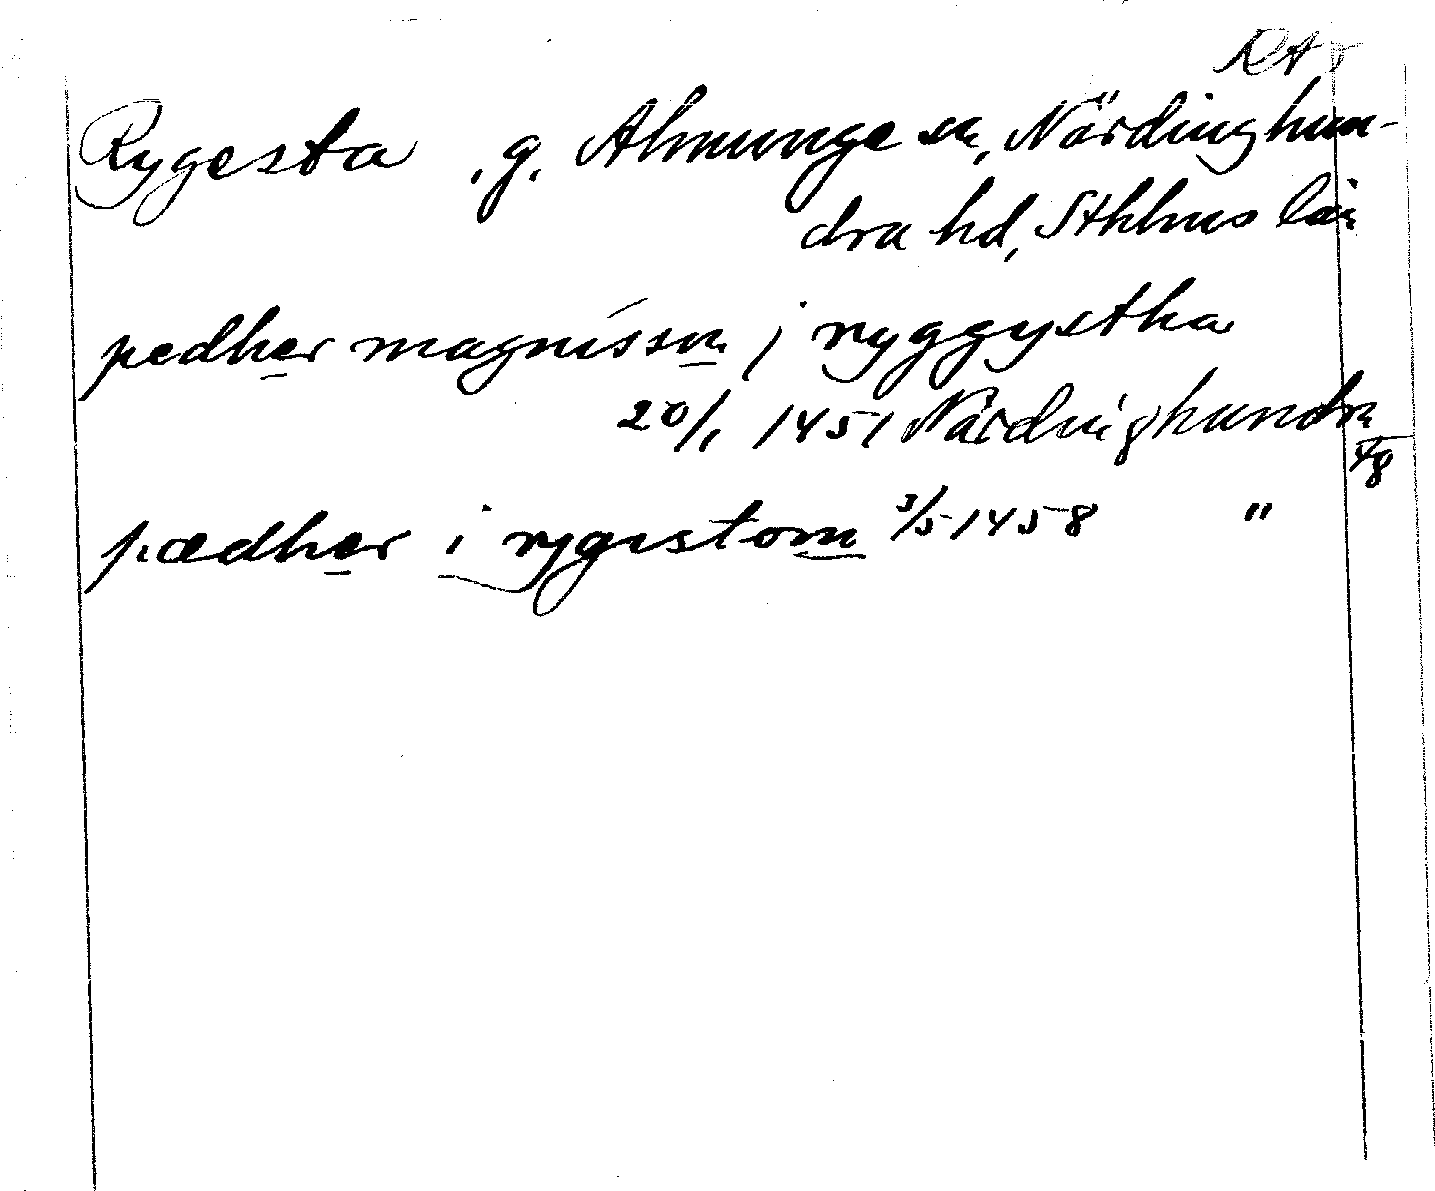 RA
Rygesta, g. Almunge sn, Närdinghun-
dra hd, Sthlms län
pedher magnisson j ryggystha
20/1 1451 Närdinghundra
fg
pædher i rygistom 3/5 1458 "